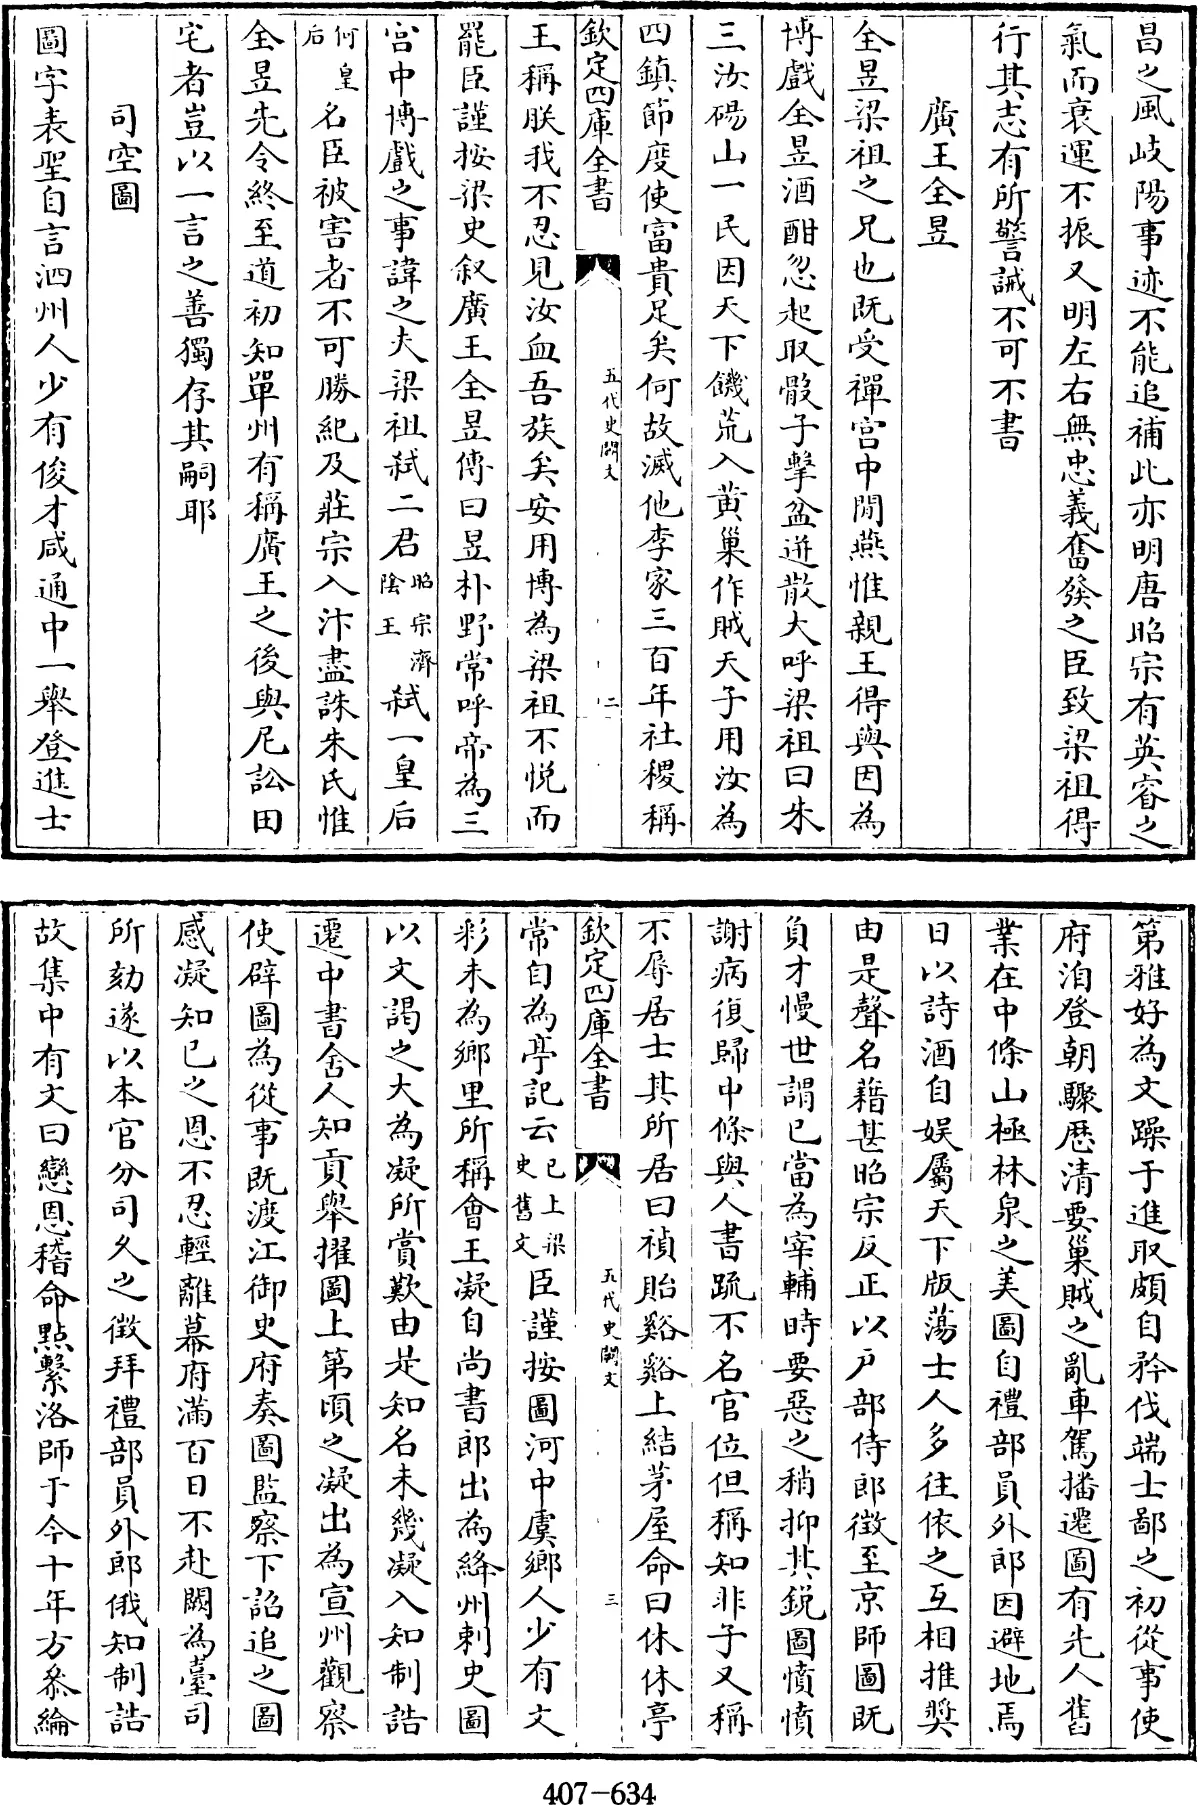 昌之風岐陽事迹不能追補此亦明唐昭宗有英睿之
氣而衰運不振又明左右無忠義奮發之臣致梁祖得
行其志有所警誡不可不書
廣王全昱
全昱梁祖之兄也既受禪宫中閒燕惟親王得與因為
博戲全昱酒酣忽起取骰子擊盆迸散大呼梁祖曰朱
三汝碭山一民因天下饑荒入黄巢作賊天子用汝為
四鎮節度使富貴足矣何故滅他李家三百年社稷稱
欽定四庫全書
五代史闕文
二
王稱朕我不忍見汝血吾族矣安用博為梁祖不悦而
罷臣謹按梁史叙廣王全昱傳曰昱朴野常呼帝為三
宫中博戲之事諱之夫梁祖弑二君昭宗濟陰王弑一皇后
何皇后名臣被害者不可勝紀及莊宗入汴盡誅朱氏惟
全昱先令終至道初知單州有稱廣王之後與尼訟田
宅者豈以一言之善獨存其嗣耶
司空圖
圖字表聖自言泗州人少有俊才咸通中一舉登進士
第雅好為文躁于進取頗自矜伐端士鄙之初從事使
府洎登朝驟歷清要巢賊之亂車駕播遷圖有先人舊
業在中條山極林泉之美圖自禮部員外郎因避地焉
日以詩酒自娱屬天下版蕩士人多往依之互相推奬
由是聲名藉甚昭宗反正以戸部侍郎徵至京師圖既
負才慢世謂已當為宰輔時要惡之稍抑其鋭圖憤憤
謝病復歸中條與人書疏不名官位但稱知非子又稱
不辱居士其所居曰禎貽谿谿上結茅屋命曰休休亭
欽定四庫全書
五代史闕文
三
常自為亭記云已上梁史舊文臣謹按圖河中虞鄉人少有文
彩未為鄉里所稱會王凝自尚書郎出為絳州刺史圖
以文謁之大為凝所賞歎由是知名未幾凝入知制誥
遷中書舍人知貢舉擢圖上第頃之凝出為宣州觀察
使辟圖為從事既渡江御史府奏圖監察下詔追之圖
感凝知已之恩不忍輕離幕府滿百日不赴闕為臺司
所劾遂以本官分司久之徵拜禮部員外郎俄知制誥
故集中有文曰戀恩稽命點繫洛師于今十年方忝綸
407-634